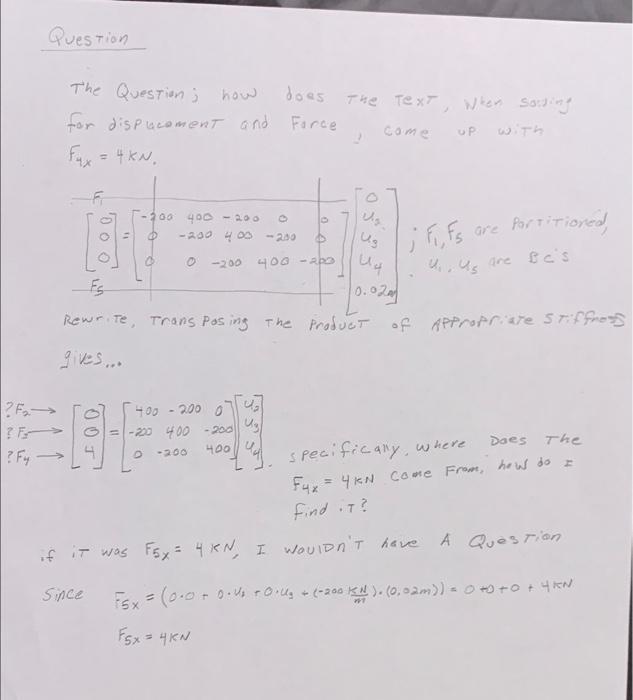 Question
The Question; how does The Text, when solving
for displacement and Force, come up with
F4x = 4 KN.
F1
[0 0 0] = [-200 400 -200 0 0
0 -200 400 -200 0
0 0 -200 400 -200] [0 u2 u3 u4 0.02m] ; F1, F5 are Partitioned,
u1, u5 are BC's
F5
Rewrite, Transposing The Product of Appropriate Stiffness
gives...
? F2→ [0 = [400 -200 0 [u2
? F3→ 0 -200 400 -200 u3
? F4→ 4] 0 -200 400] u4].
specifically, where Does The
F4x = 4 KN Come From, how do I
find it?
if iT was F5x = 4 KN, I wouldn't have A Question
Since F5x = (0·0 + 0·u2 + 0·u3 + (-200 KN/m)·(0.02m)) = 0+0+0+4KN
F5x = 4KN